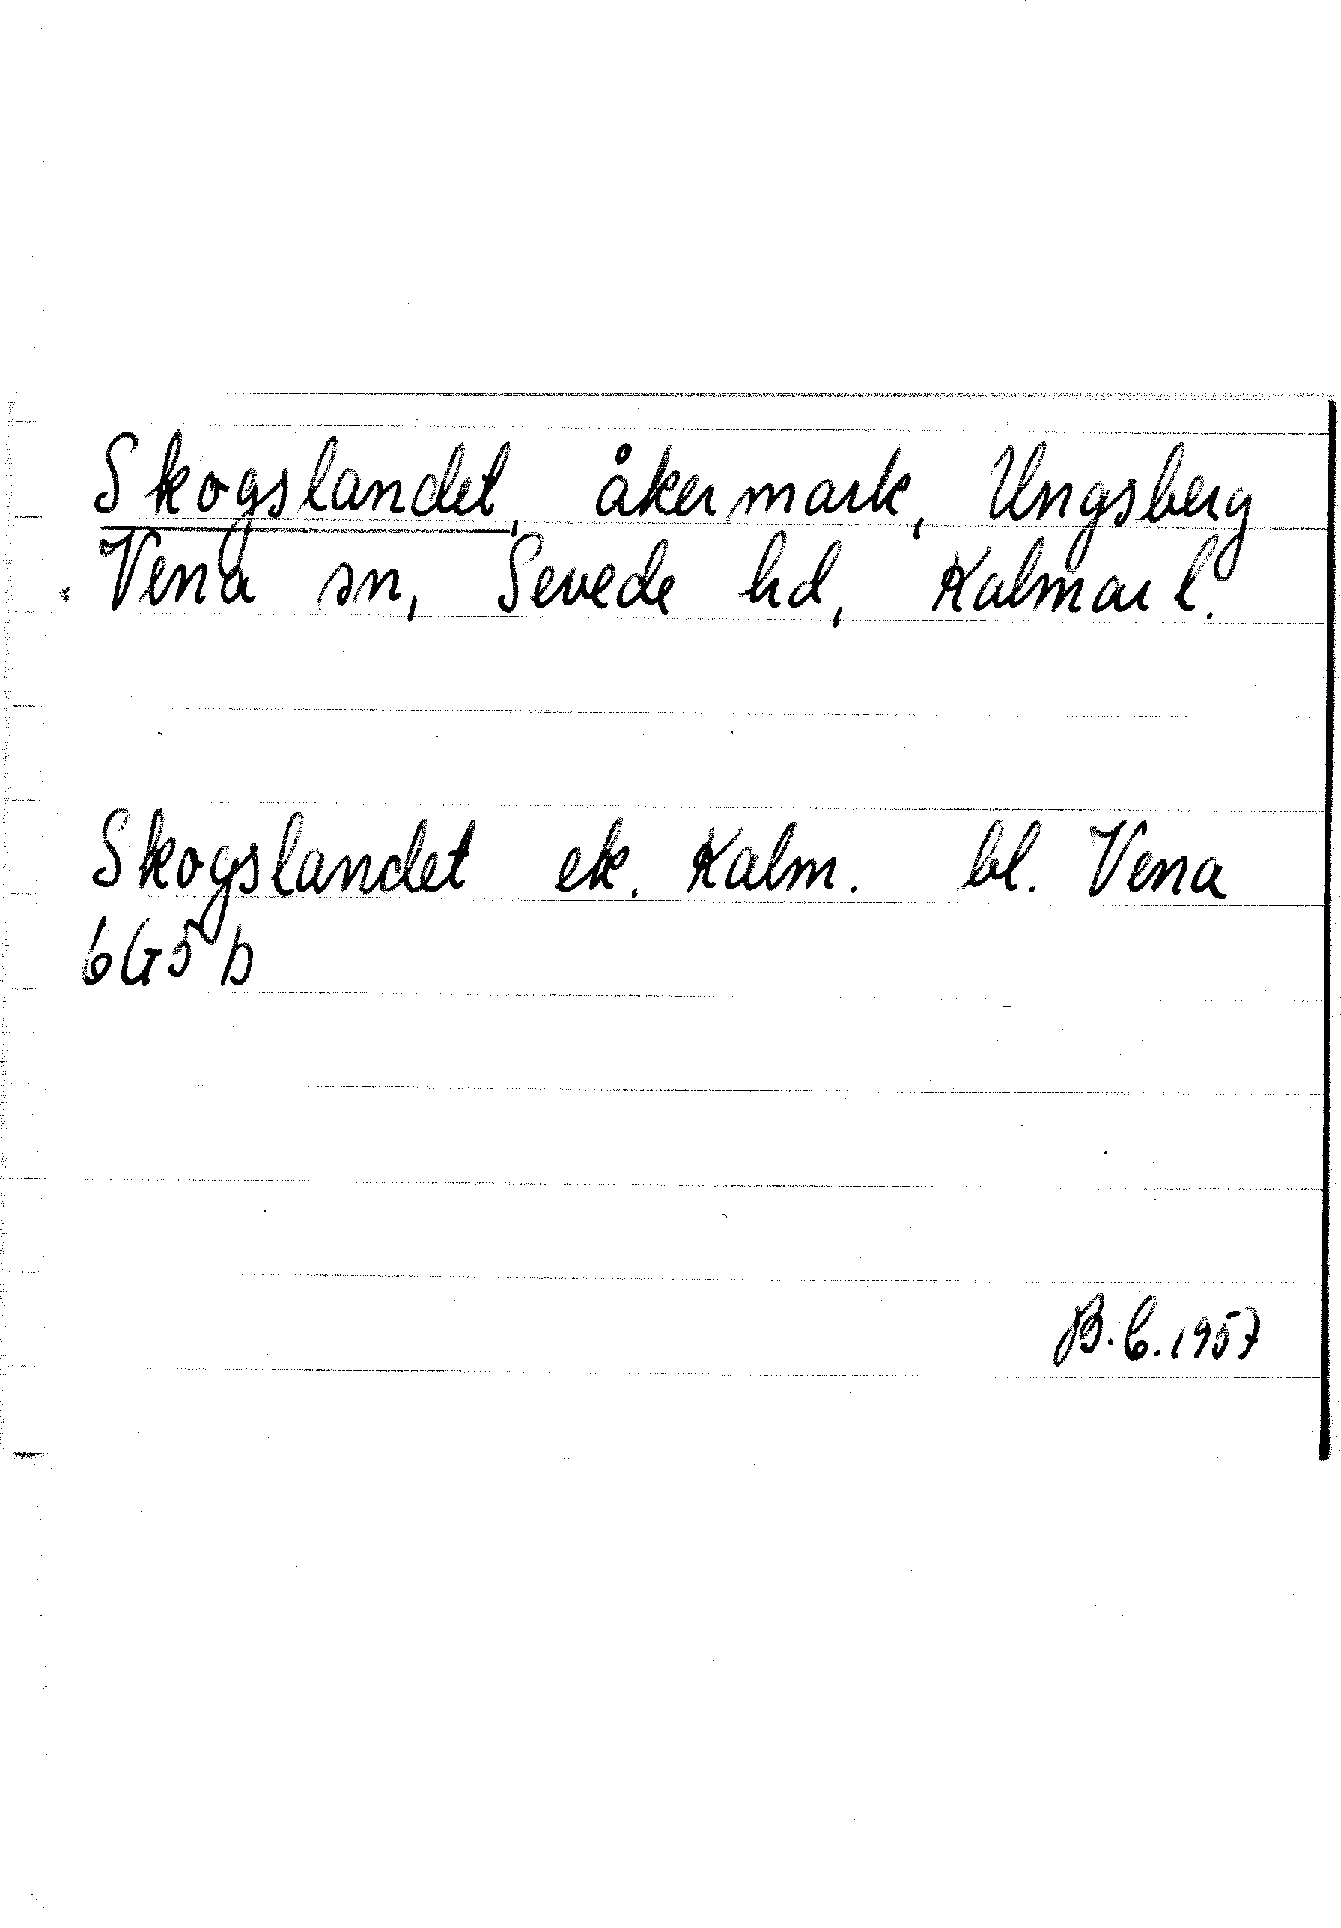 Skogslandet, åkermark, Ungsberg
Vena sn, Sevede hd, Kalmar l.
Skogslandet ek. Kalm. bl. Vena
6G5 b
B.C. 1957